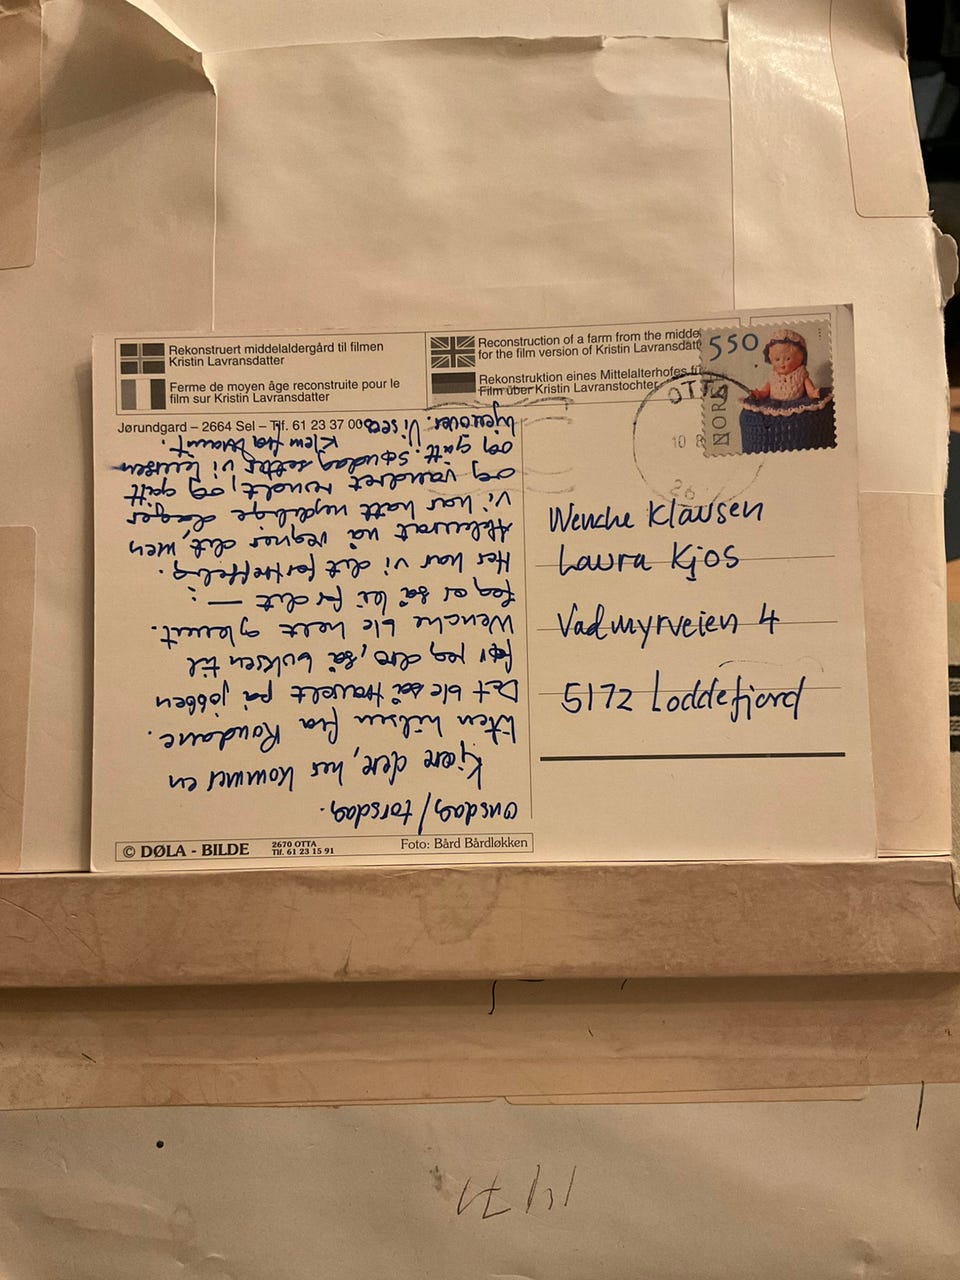 Rekonstruert middelaldergård til filmen
Kristin Lavransdatter
Ferme de moyen âge reconstruite pour le
film sur Kristin Lavransdatter
Reconstruction of a farm from the midde
for the film version of Kristin Lavransdatt
Rekonstruktion eines Mittelalterhofes
Film über Kristin Lavranstochter
Jørundgard – 2664 Sel – Tlf. 61 23 37 00
550
NORGE
OTTA
10 8
26
Wenche Klausen
Laura Kjos
Vadmyrveien 4
5172 Loddefjord
onsdag/torsdag.
Kjære dere, her kommer en
liten hilsen fra Rondane.
Det ble så travelt på jobben
før jeg dro, så buksen til
Wenche ble helt glemt.
Jeg er så lei for det —:
Her har vi det fortreffelig.
Akkurat nå regner det, men
vi har hatt nydelige dager
og vandret rundt, og gått
og gått. Søndag setter vi kursen
hjemover. Vi sees
Klem fra
© DØLA - BILDE
2670 OTTA
Tlf. 61 23 15 91
Foto: Bård Bårdløkken